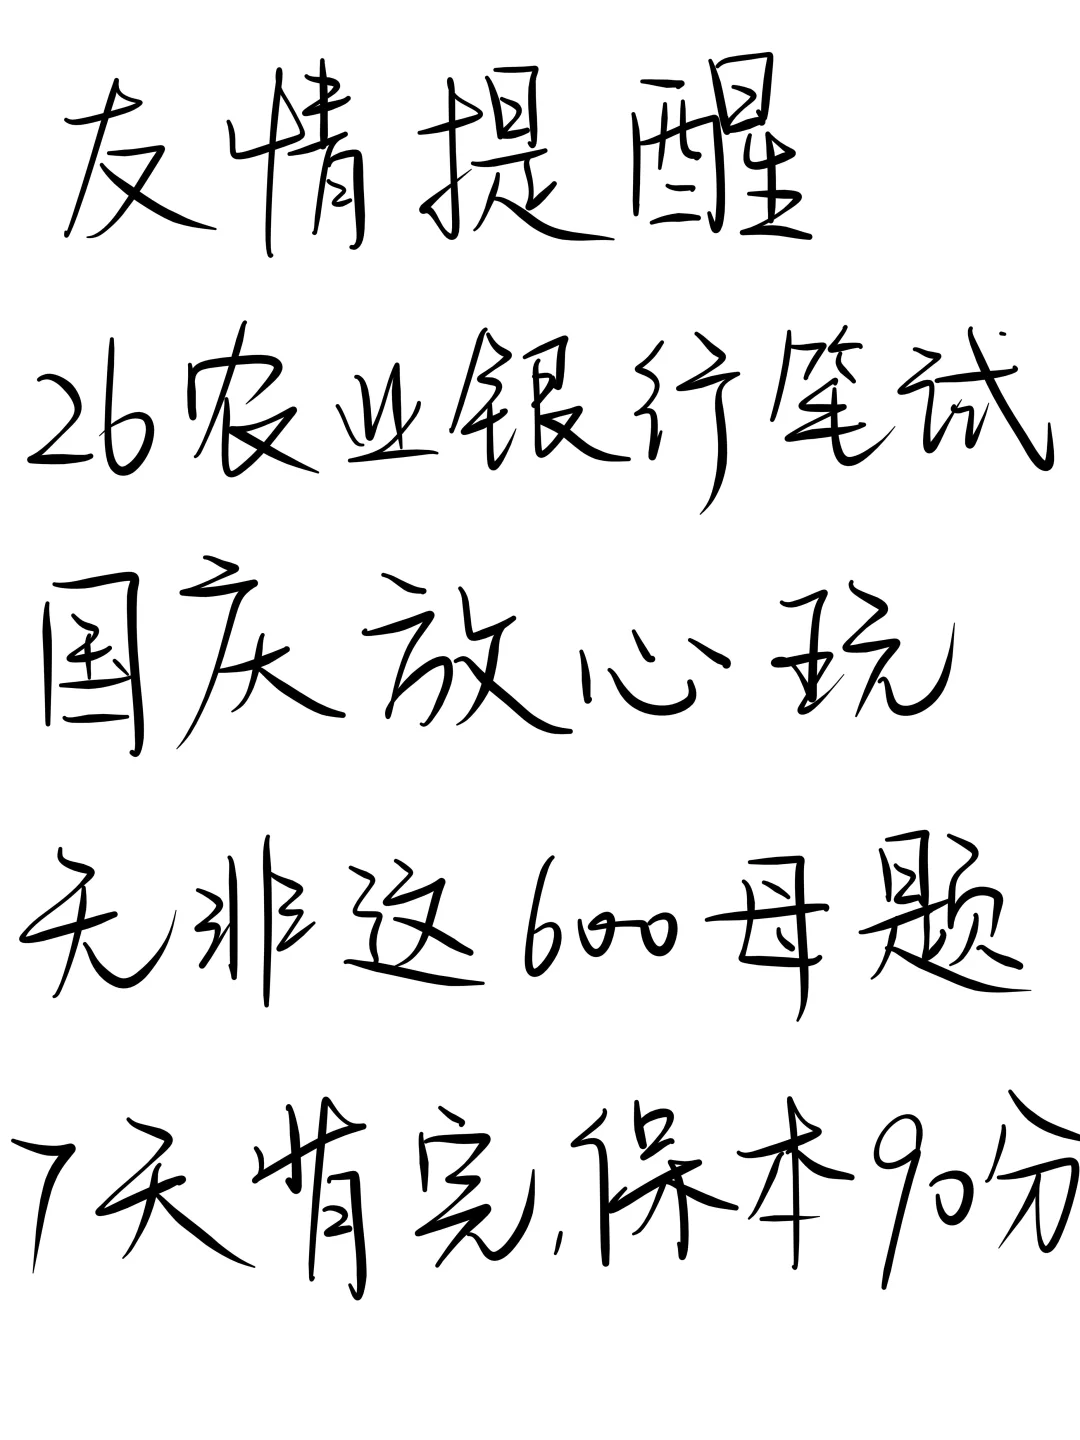 友情提醒
26农业银行笔试
国庆放心玩
无非这600母题
7天背完,保本90分